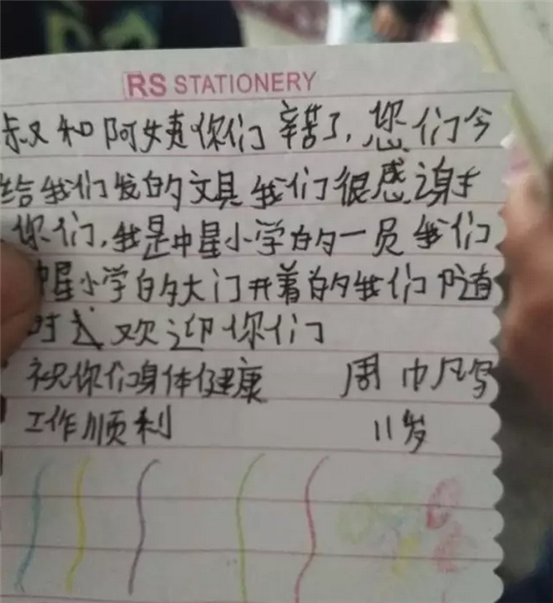 RS STATIONERY
叔和阿姨你们辛苦了,您们今
给我们发的文具我们很感谢
你们,我是中星小学的一员我们
中星小学的大门开着的我们随
时 欢迎你们
祝你们身体健康 周巾凡写
工作顺利 11岁